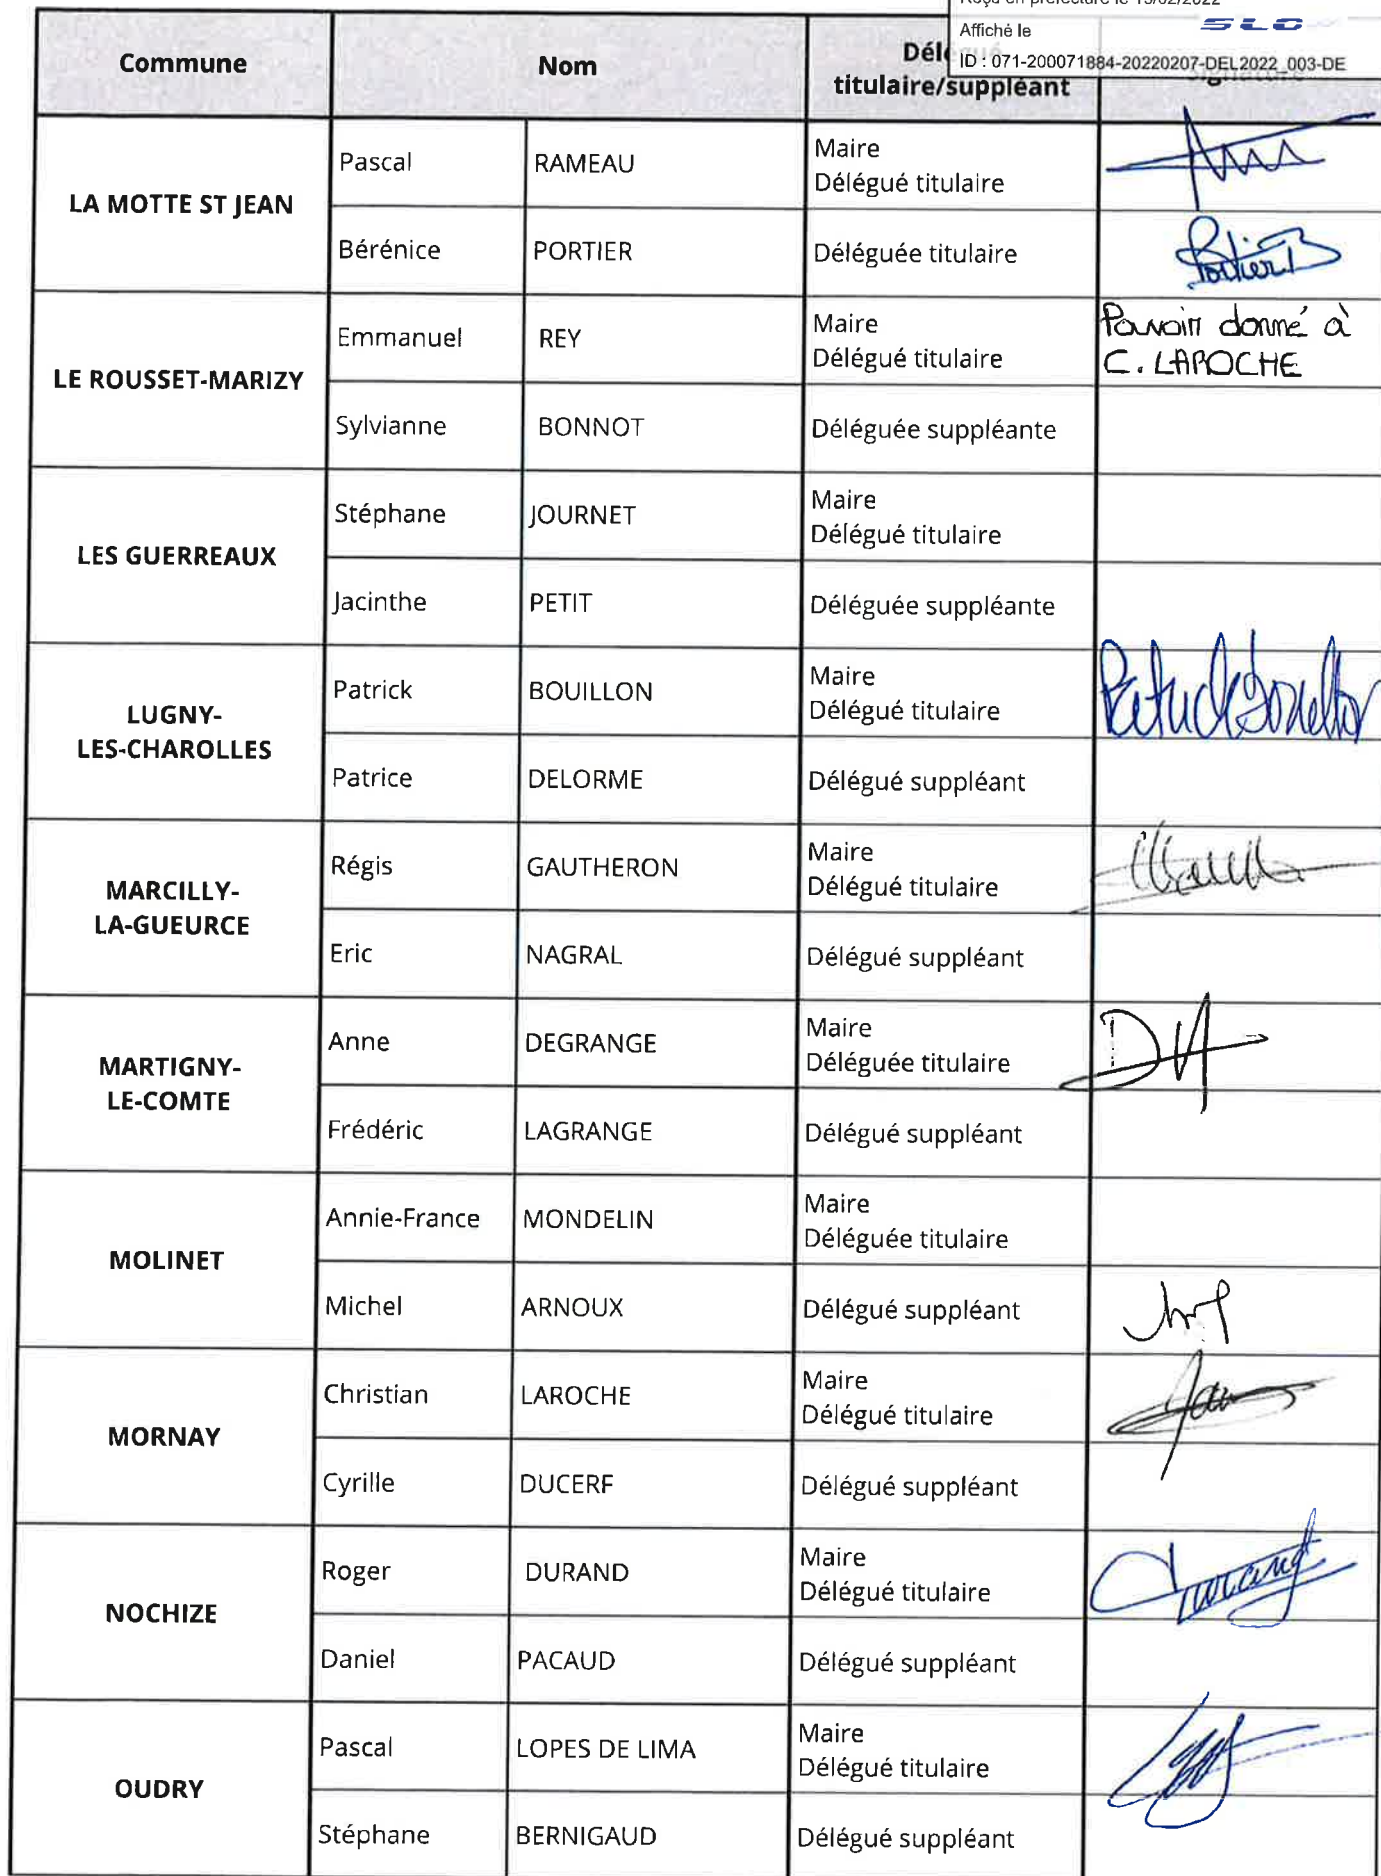 Reçu en préfecture le 15/02/2022
Affiché le
SLO
ID : 071-200071884-20220207-DEL2022_003-DE
Commune
Nom
titulaire/suppléant
LA MOTTE ST JEAN
Pascal
RAMEAU
Maire
Délégué titulaire
Bérénice
PORTIER
Déléguée titulaire
Portier B
LE ROUSSET-MARIZY
Emmanuel
REY
Maire
Délégué titulaire
Pouvoir donné à
C. LAROCHE
Sylvianne
BONNOT
Déléguée suppléante
LES GUERREAUX
Stéphane
JOURNET
Maire
Délégué titulaire
Jacinthe
PETIT
Déléguée suppléante
LUGNY-
LES-CHAROLLES
Patrick
BOUILLON
Maire
Délégué titulaire
Patrice
DELORME
Délégué suppléant
MARCILLY-
LA-GUEURCE
Régis
GAUTHERON
Maire
Délégué titulaire
Eric
NAGRAL
Délégué suppléant
MARTIGNY-
LE-COMTE
Anne
DEGRANGE
Maire
Déléguée titulaire
Frédéric
LAGRANGE
Délégué suppléant
MOLINET
Annie-France
MONDELIN
Maire
Déléguée titulaire
Michel
ARNOUX
Délégué suppléant
MORNAY
Christian
LAROCHE
Maire
Délégué titulaire
Cyrille
DUCERF
Délégué suppléant
NOCHIZE
Roger
DURAND
Maire
Délégué titulaire
Daniel
PACAUD
Délégué suppléant
OUDRY
Pascal
LOPES DE LIMA
Maire
Délégué titulaire
Stéphane
BERNIGAUD
Délégué suppléant